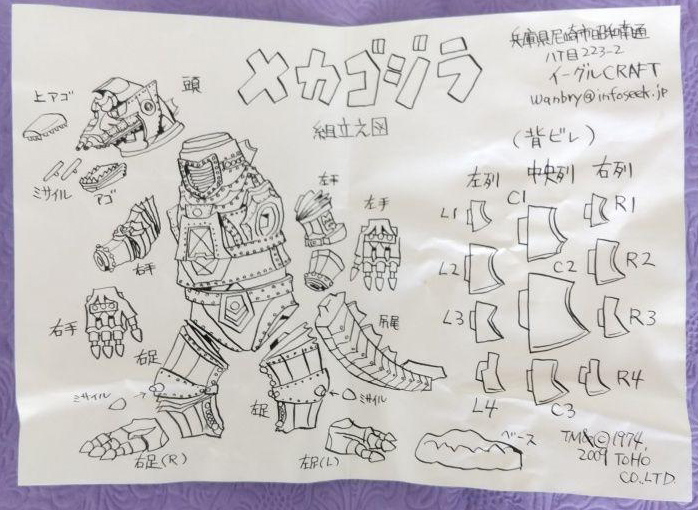 メカゴジラ
組立え図
兵庫県尼崎市昭和南通
八丁目223-2
イーグルCRAFT
wanbry@infoseek.jp
頭
上アゴ
ミサイル
アゴ
右手
右手
左手
左手
尻尾
右足
ミサイル
左足
ミサイル
右足(R)
左足(L)
ベース
(背ビレ)
左列 中央列 右列
L1 C1 R1
L2 C2 R2
L3 R3
L4 C3 R4
TM&©1974,
2009 TOHO
CO.,LTD.